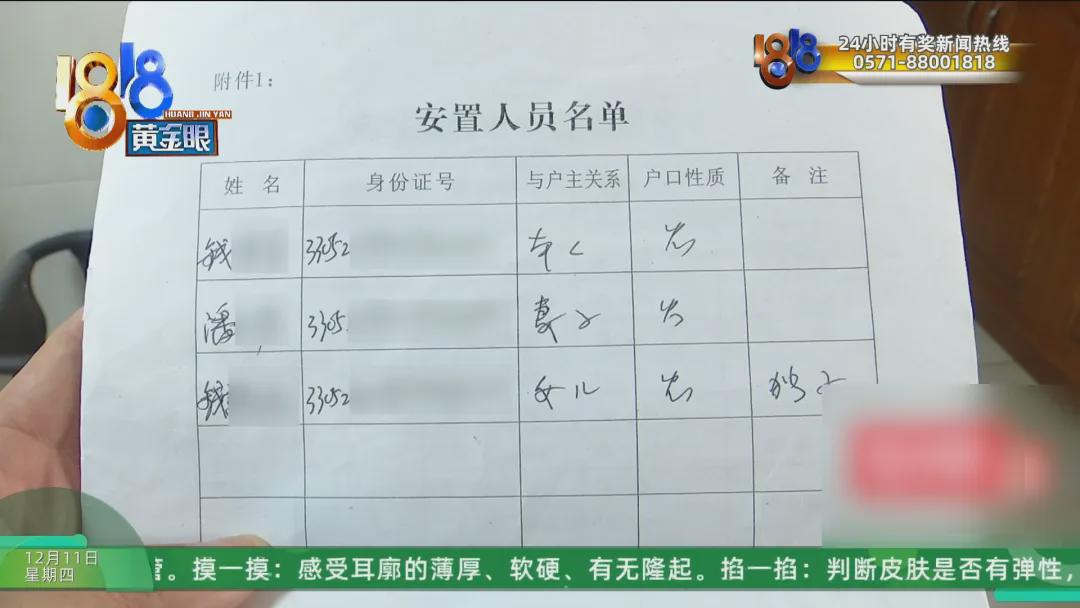 24小时有奖新闻热线
1818
0571-88001818
1818
HUANG JIN YAN
黄金眼
附件1：
安置人员名单
姓 名 身份证号 与户主关系 户口性质 备 注
钱 33052 本人 农
潘 3305 妻子 农
钱 33052 女儿 农 独子
12月11日
星期四
管。摸一摸：感受耳廓的薄厚、软硬、有无隆起。掐一掐：判断皮肤是否有弹性，